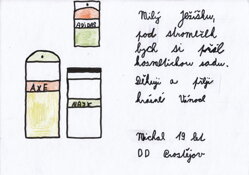 ADIDAS
AXE
MAXX
Milý Ježíšku,
pod stromeček
bych si přál
kosmetickou sadu.
Děkuji a přeji
krásné Vánoce
Michal 19 let
DD Prostějov